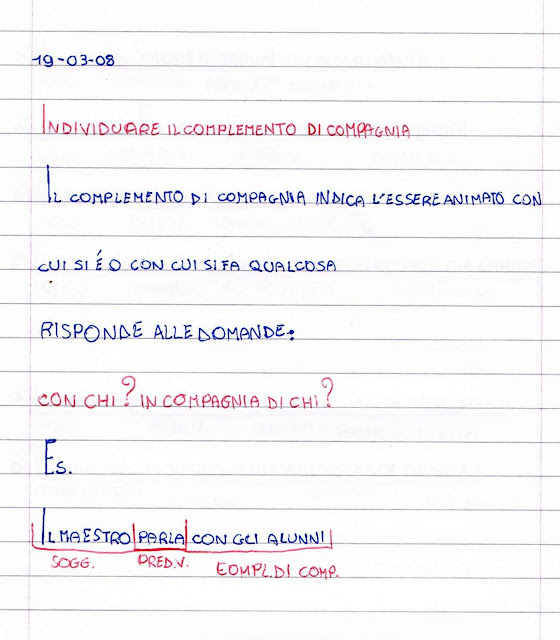 19-03-08
INDIVIDUARE IL COMPLEMENTO DI COMPAGNIA
IL COMPLEMENTO DI COMPAGNIA INDICA L'ESSERE ANIMATO CON
CUI SI É O CON CUI SI FA QUALCOSA
RISPONDE ALLE DOMANDE:
CON CHI? IN COMPAGNIA DI CHI?
ES.
IL MAESTRO PARLA CON GLI ALUNNI
SOGG. PRED.V. COMPL.DI COMP.